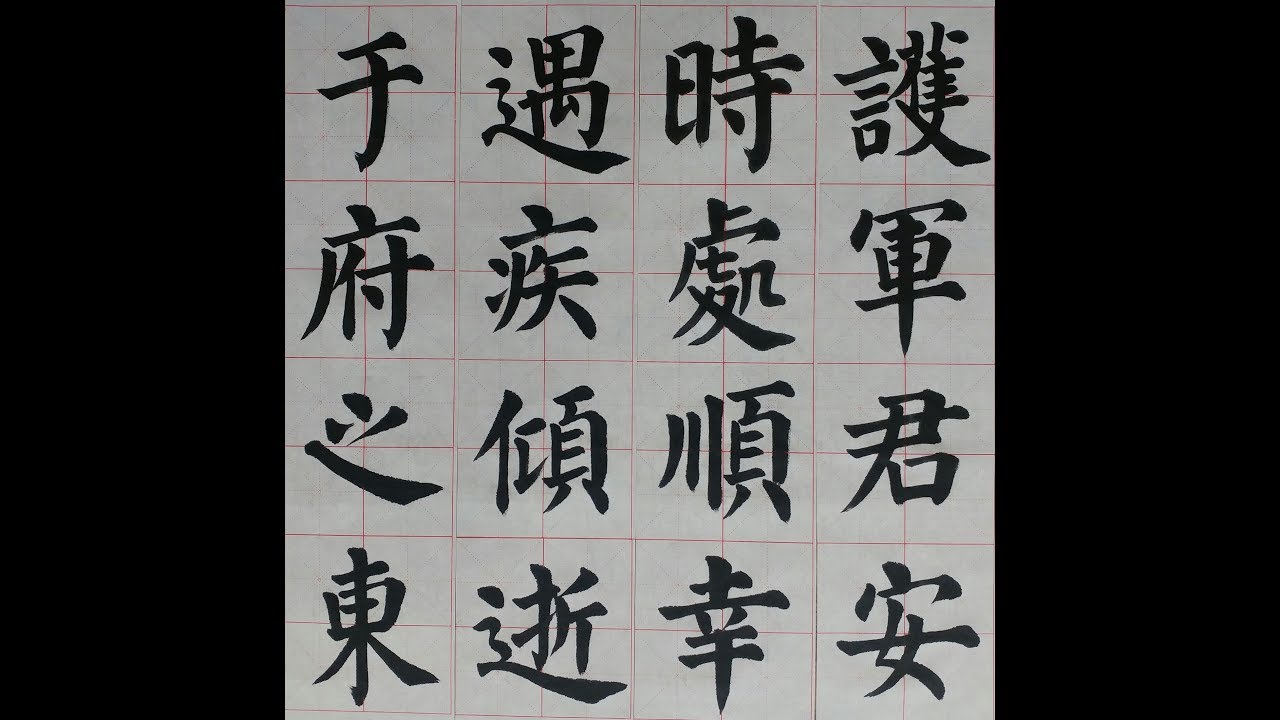 護軍君安
時處順幸
遇疾傾逝
于府之東